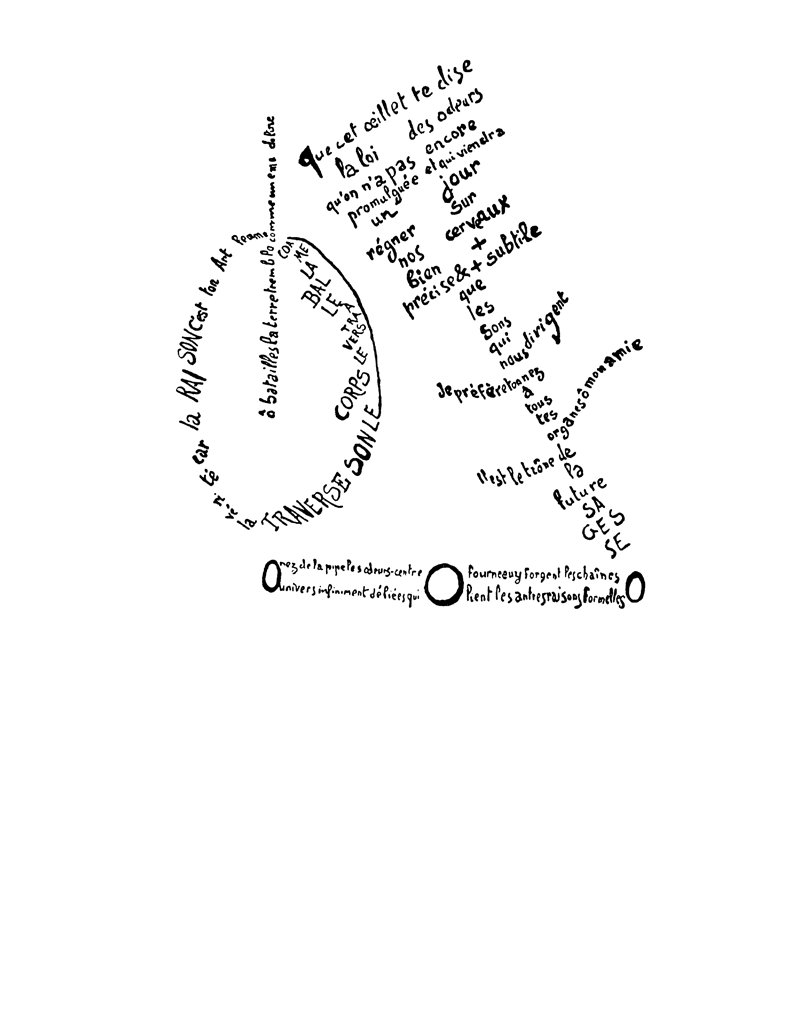 ô batailles la terre tremble comme une mandoline
COM
ME
LA
BAL
LE
A
TRA
VERS
LE
CORPS
LE SON TRAVERSE
la vé ri té car la RAISON c'est ton Art Femme
que cet œillet te dise
la loi des odeurs
qu'on n'a pas encore
promulguée et qui viendra
un jour
régner sur
nos cerveaux
bien +
précise & + subtile
que
les
sons
qui
nous dirigent
Je préfère ton nez
à
tous
tes
organes ô mon amie
Il est le trône de
la
future
SA
GES
SE
O nez de la pipe les odeurs-centre O fourneau y forgent les chaînes O
univers infiniment déliées qui lient les autres raisons formelles